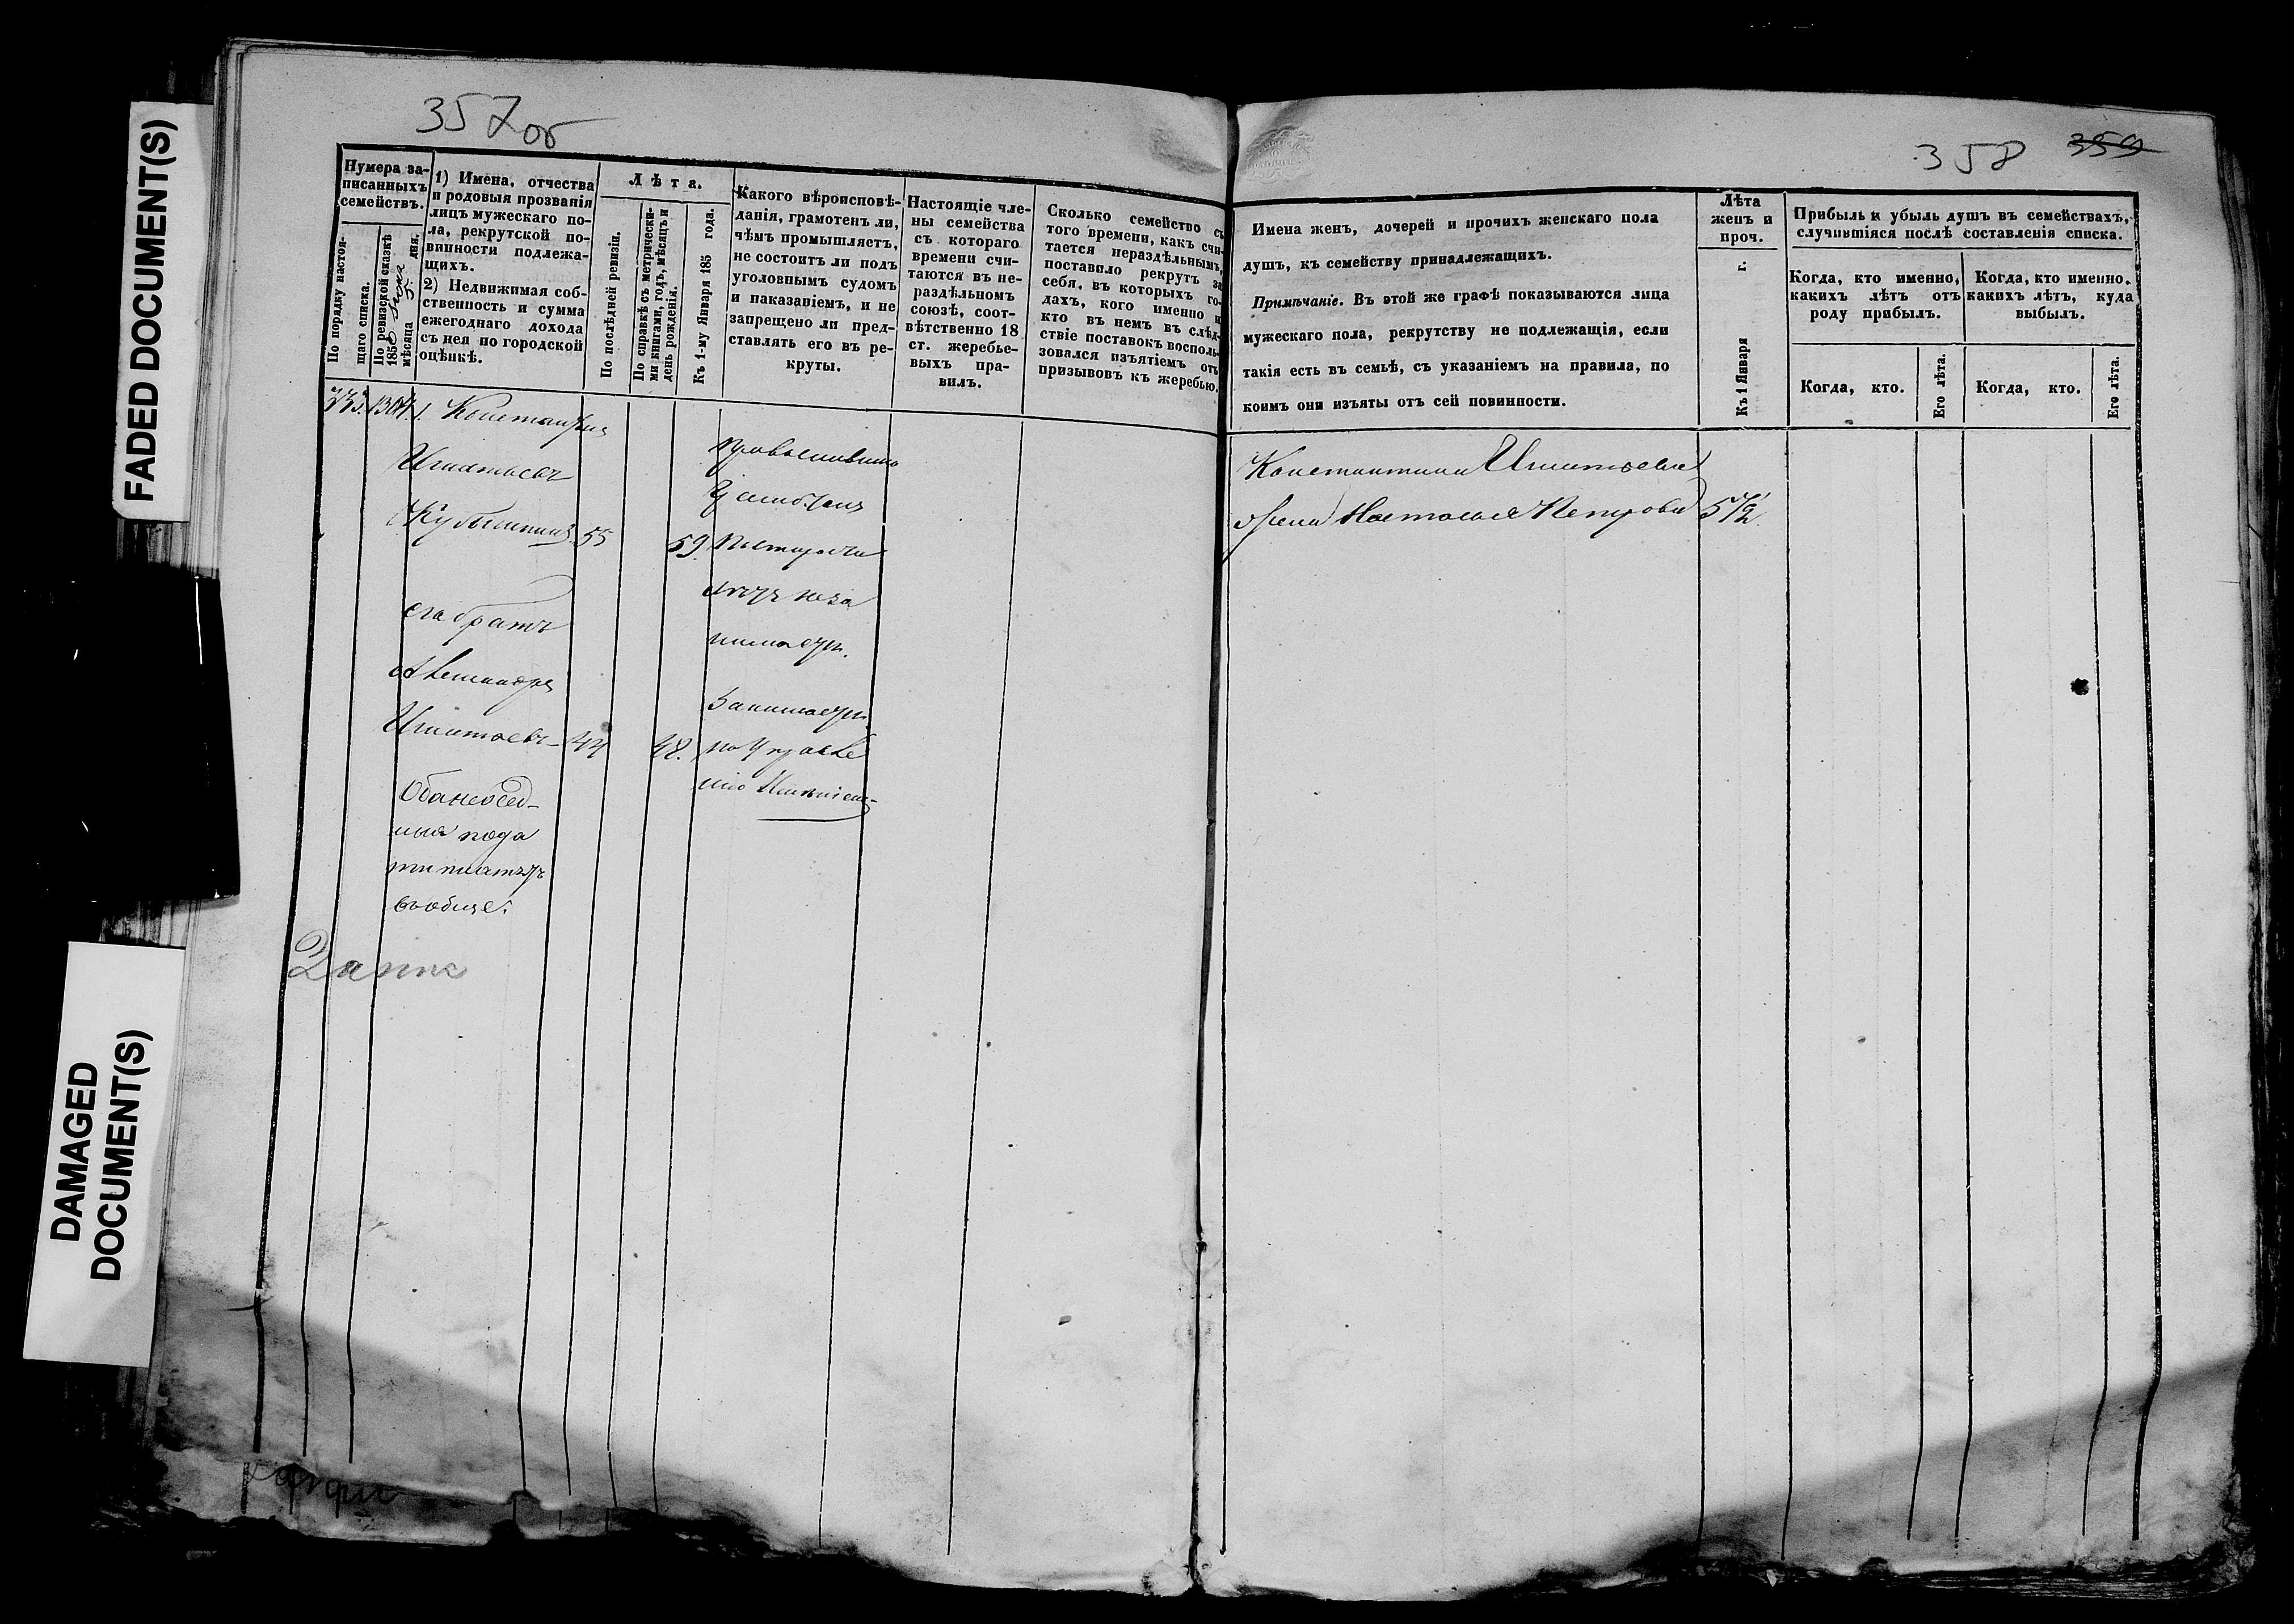 FADED DOCUMENT(S)
DAMAGED
DOCUMENT(S)
357об
Нумера за-
писанныхъ
семействъ.
По порядку настоя-
щаго списка.
По ревизской сказкѣ
1850
мѣсяца 5 дня.
1) Имена, отчества
и родовыя прозванія
лицъ мужескаго по-
ла, рекрутской по-
винности подлежа-
щихъ.
2) Недвижимая соб-
ственность и сумма
ежегоднаго дохода
съ нея по городской
оцѣнкѣ.
Лѣта.
По послѣдней ревизіи.
По справкѣ съ метрически-
ми книгами, годъ, мѣсяцъ и
день рожденія.
Къ 1-му Января 185 года.
Какого вѣроисповѣ-
данія, грамотенъ ли,
чѣмъ промышляетъ,
не состоитъ ли подъ
уголовнымъ судомъ
и наказаніемъ, и не
запрещено ли пред-
ставлять его въ ре-
круты.
Настоящіе чле-
ны семейства
съ котораго
времени счи-
таются въ не-
раздѣльномъ
союзѣ, соот-
вѣтственно 18
ст. жеребье-
выхъ пра-
вилъ.
Сколько семейство съ
того времени, какъ счи-
тается нераздѣльнымъ,
поставило рекрутъ за
себя, въ которыхъ го-
дахъ, кого именно и
кто въ немъ въ слѣд-
ствіе поставокъ восполь-
зовался изъятіемъ отъ
призывовъ къ жеребью.
Константинъ
Игнатьевъ
55
59.
его братъ
Александръ
Игнатьевъ 44
48.
Оба несед-
мыя пода
ти платятъ
вообще.
православнаго
по старости
летъ неза
нимается.
Занимается
по управле
нію Имѣніемъ
358 359
Имена женъ, дочерей и прочихъ женскаго пола
душъ, къ семейству принадлежащихъ.
Примѣчаніе. Въ этой же графѣ показываются лица
мужескаго пола, рекрутству не подлежащія, если
такія есть въ семьѣ, съ указаніемъ на правила, по
коимъ они изъяты отъ сей повинности.
Лѣта
женъ и
проч.
Къ 1 Января г.
Прибыль и убыль душъ въ семействахъ,
случившіяся послѣ составленія списка.
Когда, кто именно,
какихъ лѣтъ отъ
роду прибылъ.
Когда, кто именно,
какихъ лѣтъ, куда
выбылъ.
Когда, кто.
Его лѣта.
Когда, кто.
Его лѣта.
Константина Игнатьева
жена Настасья Петрова